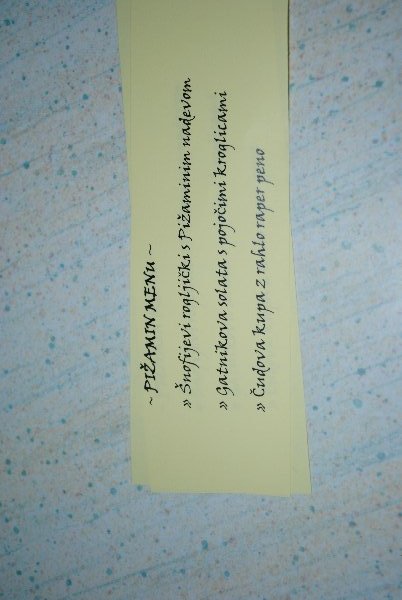 ~ PIŽAMIN MENU ~
» Šnofijevi rogljički s Pižaminim nadevom
» Gatnikova solata s pojočimi kroglicami
» Čudova kupa z rahlo raper peno